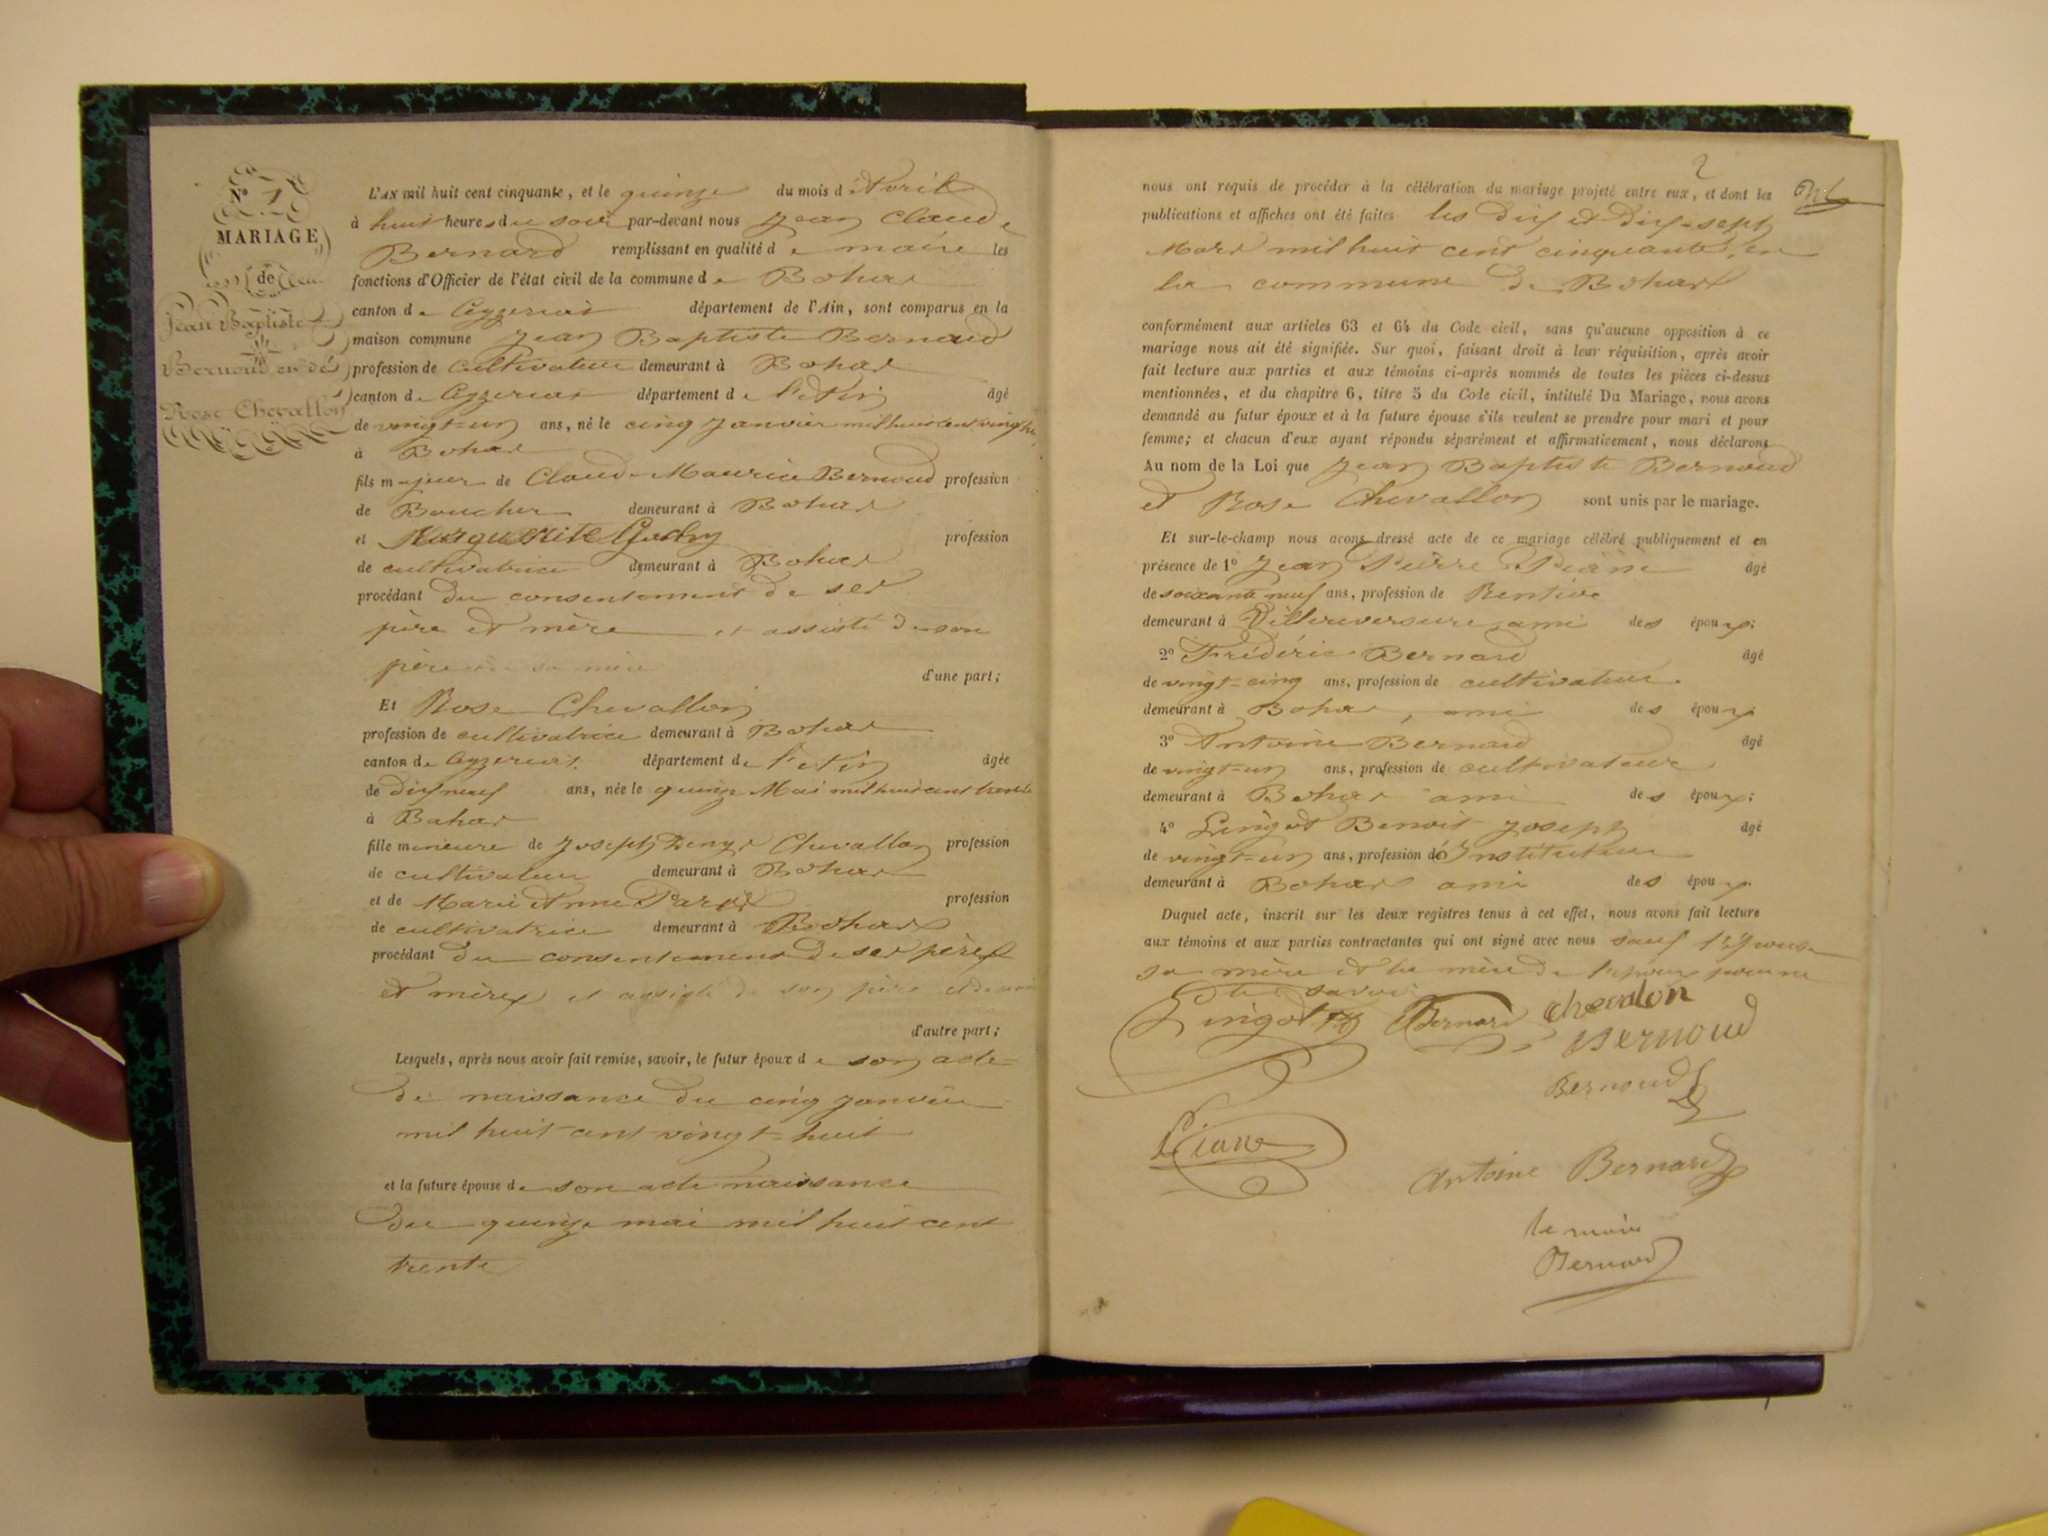 N° 1
MARIAGE
de
Jean Baptiste
Bernoud et de
Rose Chevallon
L'AN mil huit cent cinquante, et le quinze du mois d'Avril
à huit heures du soir par-devant nous Jean Claude
Bernard remplissant en qualité de maire les
fonctions d'Officier de l'état civil de la commune de Bohas
canton de Ceyzeriat département de l'Ain, sont comparus en la
maison commune Jean Baptiste Bernoud
profession de cultivateur demeurant à Bohas
canton de Ceyzeriat département de l'Ain âgé
de vingt-un ans, né le cinq Janvier mil huit cent vingt
à Bohas
fils majeur de Claude Maurice Bernoud profession
de Boucher demeurant à Bohas
et Marguerite profession
de cultivatrice demeurant à Bohas
procédant du consentement de ses
père et mère et assisté de son
père sa mère
d'une part;
Et Rose Chevallon
profession de cultivatrice demeurant à Bohas
canton de Ceyzeriat. département de l'Ain âgée
de dix neuf ans, née le quinze Mai mil huit cent trente
à Bohas
fille mineure de Joseph Denys Chevallon profession
de cultivateur demeurant à Bohas
et de Marie Anne profession
de cultivatrice demeurant à Bohas
procédant du consentement de ses père
et mère et assisté de son père et de
d'autre part;
Lesquels, après nous avoir fait remise, savoir, le futur époux de son acte
de naissance du cinq janvier
mil huit cent vingt-huit
et la future épouse de son acte naissance
du quinze mai mil huit cent
trente
2
nous ont requis de procéder à la célébration du mariage projeté entre eux, et dont les
publications et affiches ont été faites les dix et dix-sept
Mars mil huit cent cinquante, en
la commune de Bohas
conformément aux articles 63 et 64 du Code civil, sans qu'aucune opposition à ce
mariage nous ait été signifiée. Sur quoi, faisant droit à leur réquisition, après avoir
fait lecture aux parties et aux témoins ci-après nommés de toutes les pièces ci-dessus
mentionnées, et du chapitre 6, titre 5 du Code civil, intitulé Du Mariage, nous avons
demandé au futur époux et à la future épouse s'ils veulent se prendre pour mari et pour
femme; et chacun d'eux ayant répondu séparément et affirmativement, nous déclarons
Au nom de la Loi que Jean Baptiste Bernoud
et Rose Chevallon sont unis par le mariage.
Et sur-le-champ nous avons dressé acte de ce mariage célébré publiquement et en
présence de 1° Jean Pierre âgé
de soixante neuf ans, profession de Rentier
demeurant à Villereversure, ami des époux;
2° Frédéric Bernard âgé
de vingt-cinq ans, profession de cultivateur.
demeurant à Bohas, ami des époux
3° Antoine Bernard âgé
de vingt-un ans, profession de cultivateur
demeurant à Bohas ami des époux;
4° Lingot Benoit Joseph âgé
de vingt-un ans, profession d'Instituteur
demeurant à Bohas ami des époux.
Duquel acte, inscrit sur les deux registres tenus à cet effet, nous avons fait lecture
aux témoins et aux parties contractantes qui ont signé avec nous sauf l'épouse
sa mère et la mère de l'époux pour ne
le savoir
Lingot Bernard Chevalon
Bernoud
Bernoud
Antoine Bernard
le maire
Bernard